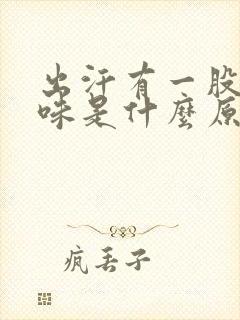 出汗有一股
味是什麼原
疯丢子